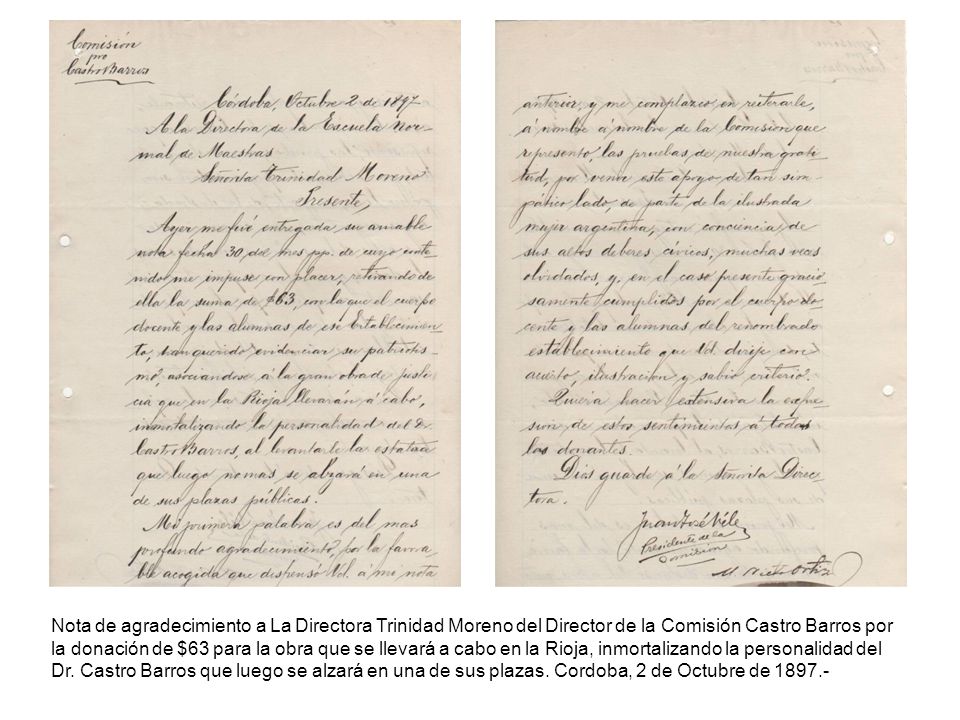 Comisión
pro
Castro Barros
Córdoba, Octubre 2 de 1897
A la Directora de la Escuela Nor-
mal de Maestras
Señorita Trinidad Moreno
Presente,
Ayer me fué entregada su amable
nota fecha 30 del mes pp. de cuyo conte-
nido me impuse con placer, retirando de
ella la suma de $63, con la que el cuerpo
docente y las alumnas de ese Establecimien-
to, han querido evidenciar su patriotis-
mo, asociandose á la gran obra de justi-
cia que en la Rioja llevaran á cabo,
inmortalizando la personalidad del Dr.
Castro Barros, al levantarle la estatua
que luego nomas se alzará en una
de sus plazas públicas.
Mi primera palabra es del mas
profundo agradecimiento, por la favora-
ble acogida que dispensó Vd. á mi nota
anterior, y me complazco en reiterarle,
á nombre á nombre de la Comision que
represento, las pruebas de nuestra grati-
tud, por venir este apoyo de tan sim-
pático lado, de parte de la ilustrada
mujer argentina, con conciencia de
sus altos deberes cívicos, muchas veces
olvidados, y, en el caso presente gracio-
samente cumplidos por el cuerpo do-
cente y las alumnas del renombrado
establecimiento que Vd. dirije con
acierto, ilustracion y sabio criterio.
Quiera hacer extensiva la expre-
sión de estos sentimientos á todos
los donantes.
Dios guarde á la Señorita Direc-
tora.
Juan José Vélez
Presidente de la
Comision
M. Nieto Ortiz
Nota de agradecimiento a La Directora Trinidad Moreno del Director de la Comisión Castro Barros por
la donación de $63 para la obra que se llevará a cabo en la Rioja, inmortalizando la personalidad del
Dr. Castro Barros que luego se alzará en una de sus plazas. Cordoba, 2 de Octubre de 1897.-